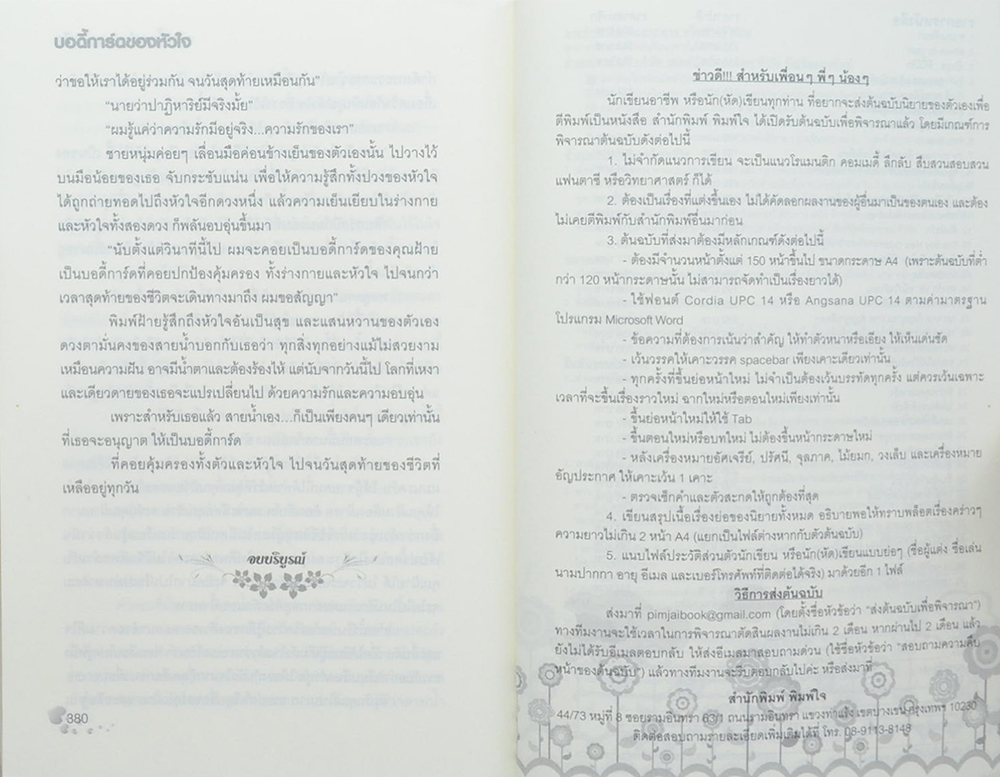 บอดี้การ์ดของหัวใจ
ว่าขอให้เราได้อยู่ร่วมกัน จนวันสุดท้ายเหมือนกัน”
“นายว่าปาฏิหาริย์มีจริงมั้ย”
“ผมรู้แค่ว่าความรักมีอยู่จริง...ความรักของเรา”
ชายหนุ่มค่อยๆ เลื่อนมือค่อนข้างเย็นของตัวเองนั้น ไปวางไว้
บนมือน้อยของเธอ จับกระชับแน่น เพื่อให้ความรู้สึกทั้งปวงของหัวใจ
ได้ถูกถ่ายทอดไปถึงหัวใจอีกดวงหนึ่ง แล้วความเย็นเยียบในร่างกาย
และหัวใจทั้งสองดวง ก็พลันอบอุ่นขึ้นมา
“นับตั้งแต่วินาทีนี้ไป ผมจะคอยเป็นบอดี้การ์ดของคุณฝ้าย
เป็นบอดี้การ์ดที่คอยปกป้องคุ้มครอง ทั้งร่างกายและหัวใจ ไปจนกว่า
เวลาสุดท้ายของชีวิตจะเดินทางมาถึง ผมขอสัญญา”
พิมพ์ฝ้ายรู้สึกถึงหัวใจอันเป็นสุข และแสนหวานของตัวเอง
ดวงตามั่นคงของสายน้ำบอกกับเธอว่า ทุกสิ่งทุกอย่างแม้ไม่สวยงาม
เหมือนความฝัน อาจมีน้ำตาและต้องร้องไห้ แต่นับจากวันนี้ไป โลกที่เหงา
และเดียวดายของเธอจะแปรเปลี่ยนไป ด้วยความรักและความอบอุ่น
เพราะสำหรับเธอแล้ว สายน้ำเอง...ก็เป็นเพียงคนๆ เดียวเท่านั้น
ที่เธอจะอนุญาต ให้เป็นบอดี้การ์ด
ที่คอยคุ้มครองทั้งตัวและหัวใจ ไปจนวันสุดท้ายของชีวิตที่
เหลืออยู่ทุกวัน
จบบริบูรณ์
380
ข่าวดี!!! สำหรับเพื่อนๆ พี่ๆ น้องๆ
นักเขียนอาชีพ หรือนัก(หัด)เขียนทุกท่าน ที่อยากจะส่งต้นฉบับนิยายของตัวเองเพื่อ
ตีพิมพ์เป็นหนังสือ สำนักพิมพ์ พิมพ์ใจ ได้เปิดรับต้นฉบับเพื่อพิจารณาแล้ว โดยมีเกณฑ์การ
พิจารณาต้นฉบับดังต่อไปนี้
1. ไม่จำกัดแนวการเขียน จะเป็นแนวโรแมนติก คอมเมดี้ ลึกลับ สืบสวนสอบสวน
แฟนตาซี หรือวิทยาศาสตร์ ก็ได้
2. ต้องเป็นเรื่องที่แต่งขึ้นเอง ไม่ได้คัดลอกผลงานของผู้อื่นมาเป็นของตนเอง และต้อง
ไม่เคยตีพิมพ์กับสำนักพิมพ์อื่นมาก่อน
3. ต้นฉบับที่ส่งมาต้องมีหลักเกณฑ์ดังต่อไปนี้
- ต้องมีจำนวนหน้าตั้งแต่ 150 หน้าขึ้นไป ขนาดกระดาษ A4 (เพราะต้นฉบับที่ต่ำ
กว่า 120 หน้ากระดาษนั้น ไม่สามารถจัดทำเป็นเรื่องยาวได้)
- ใช้ฟอนต์ Cordia UPC 14 หรือ Angsana UPC 14 ตามค่ามาตรฐาน
โปรแกรม Microsoft Word
- ข้อความที่ต้องการเน้นว่าสำคัญ ให้ทำตัวหนาหรือเอียง ให้เห็นเด่นชัด
- เว้นวรรคให้เคาะวรรค spacebar เพียงเคาะเดียวเท่านั้น
- ทุกครั้งที่ขึ้นย่อหน้าใหม่ ไม่จำเป็นต้องเว้นบรรทัดทุกครั้ง แต่ควรเว้นเฉพาะ
เวลาที่จะขึ้นเรื่องราวใหม่ ฉากใหม่หรือตอนใหม่เพียงเท่านั้น
- ขึ้นย่อหน้าใหม่ให้ใช้ Tab
- ขึ้นตอนใหม่หรือบทใหม่ ไม่ต้องขึ้นหน้ากระดาษใหม่
- หลังเครื่องหมายอัศเจรีย์, ปรัศนี, จุลภาค, ไม้ยมก, วงเล็บ และเครื่องหมาย
อัญประกาศ ให้เคาะเว้น 1 เคาะ
- ตรวจเช็กคำและตัวสะกดให้ถูกต้องที่สุด
4. เขียนสรุปเนื้อเรื่องย่อของนิยายทั้งหมด อธิบายพอให้ทราบพล็อตเรื่องคร่าวๆ
ความยาวไม่เกิน 2 หน้า A4 (แยกเป็นไฟล์ต่างหากกับตัวต้นฉบับ)
5. แนบไฟล์ประวัติส่วนตัวนักเขียน หรือนัก(หัด)เขียนแบบย่อๆ (ชื่อผู้แต่ง ชื่อเล่น
นามปากกา อายุ อีเมล และเบอร์โทรศัพท์ที่ติดต่อได้จริง) มาด้วยอีก 1 ไฟล์
วิธีการส่งต้นฉบับ
ส่งมาที่ pimjaibook@gmail.com (โดยตั้งชื่อหัวข้อว่า “ส่งต้นฉบับเพื่อพิจารณา”)
ทางทีมงานจะใช้เวลาในการพิจารณาตัดสินผลงานไม่เกิน 2 เดือน หากผ่านไป 2 เดือน แล้ว
ยังไม่ได้รับอีเมลตอบกลับ ให้ส่งอีเมลมาสอบถามด่วน (ใช้ชื่อหัวข้อว่า “สอบถามความคืบ
หน้าของต้นฉบับ”) แล้วทางทีมงานจะรีบตอบกลับไปค่ะ หรือส่งมาที่
สำนักพิมพ์ พิมพ์ใจ
44/73 หมู่ที่ 8 ซอยรามอินทรา 63/1 ถนนรามอินทรา แขวงท่าแร้ง เขตบางเขน กรุงเทพฯ 10230
ติดต่อสอบถามรายละเอียดเพิ่มเติมได้ที่ โทร. 08-9113-8143